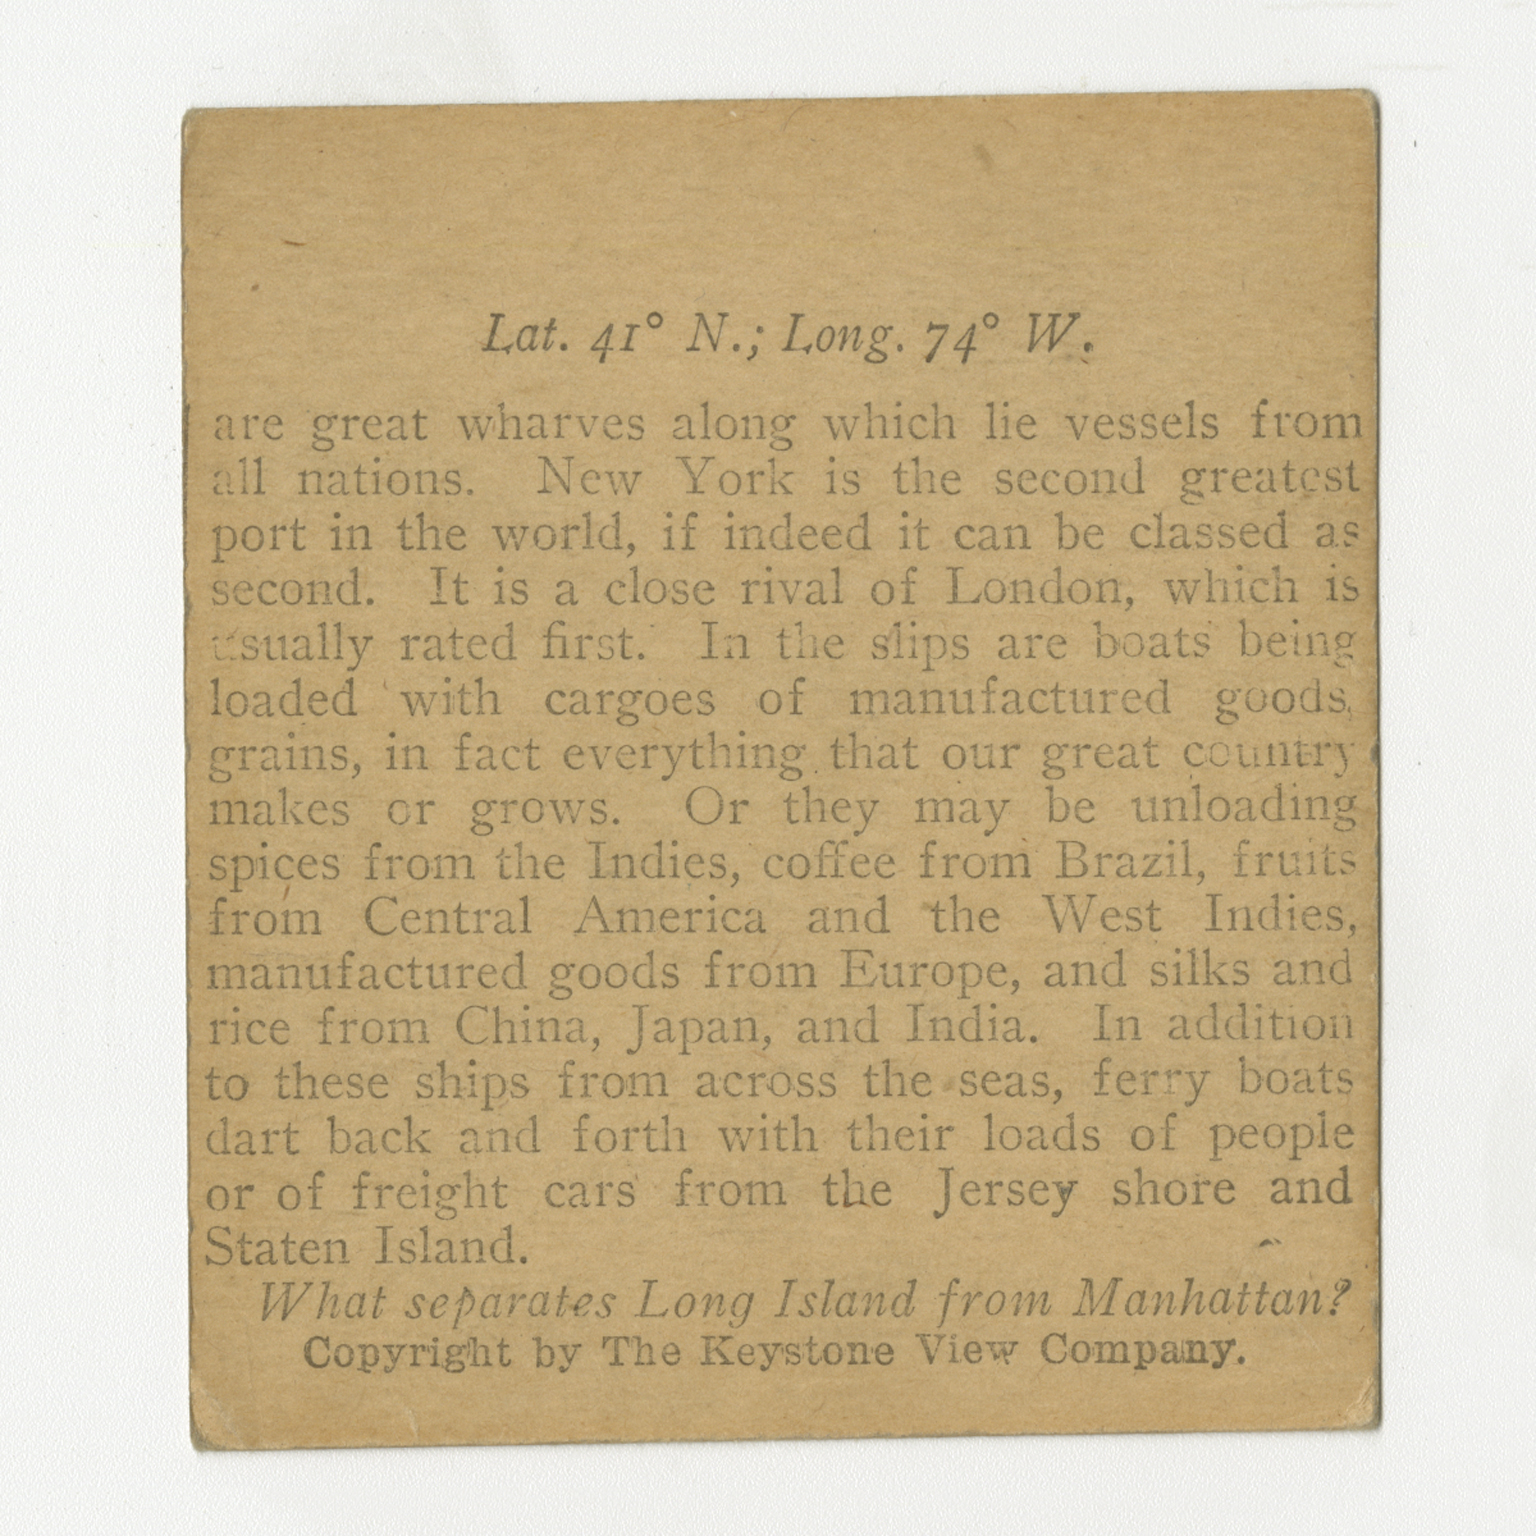 Lat. 41° N.; Long. 74° W.
are great wharves along which lie vessels from
all nations. New York is the second greatest
port in the world, if indeed it can be classed as
second. It is a close rival of London, which is
usually rated first. In the slips are boats being
loaded with cargoes of manufactured goods,
grains, in fact everything that our great country
makes or grows. Or they may be unloading
spices from the Indies, coffee from Brazil, fruits
from Central America and the West Indies,
manufactured goods from Europe, and silks and
rice from China, Japan, and India. In addition
to these ships from across the seas, ferry boats
dart back and forth with their loads of people
or of freight cars from the Jersey shore and
Staten Island.
What separates Long Island from Manhattan?
Copyright by The Keystone View Company.